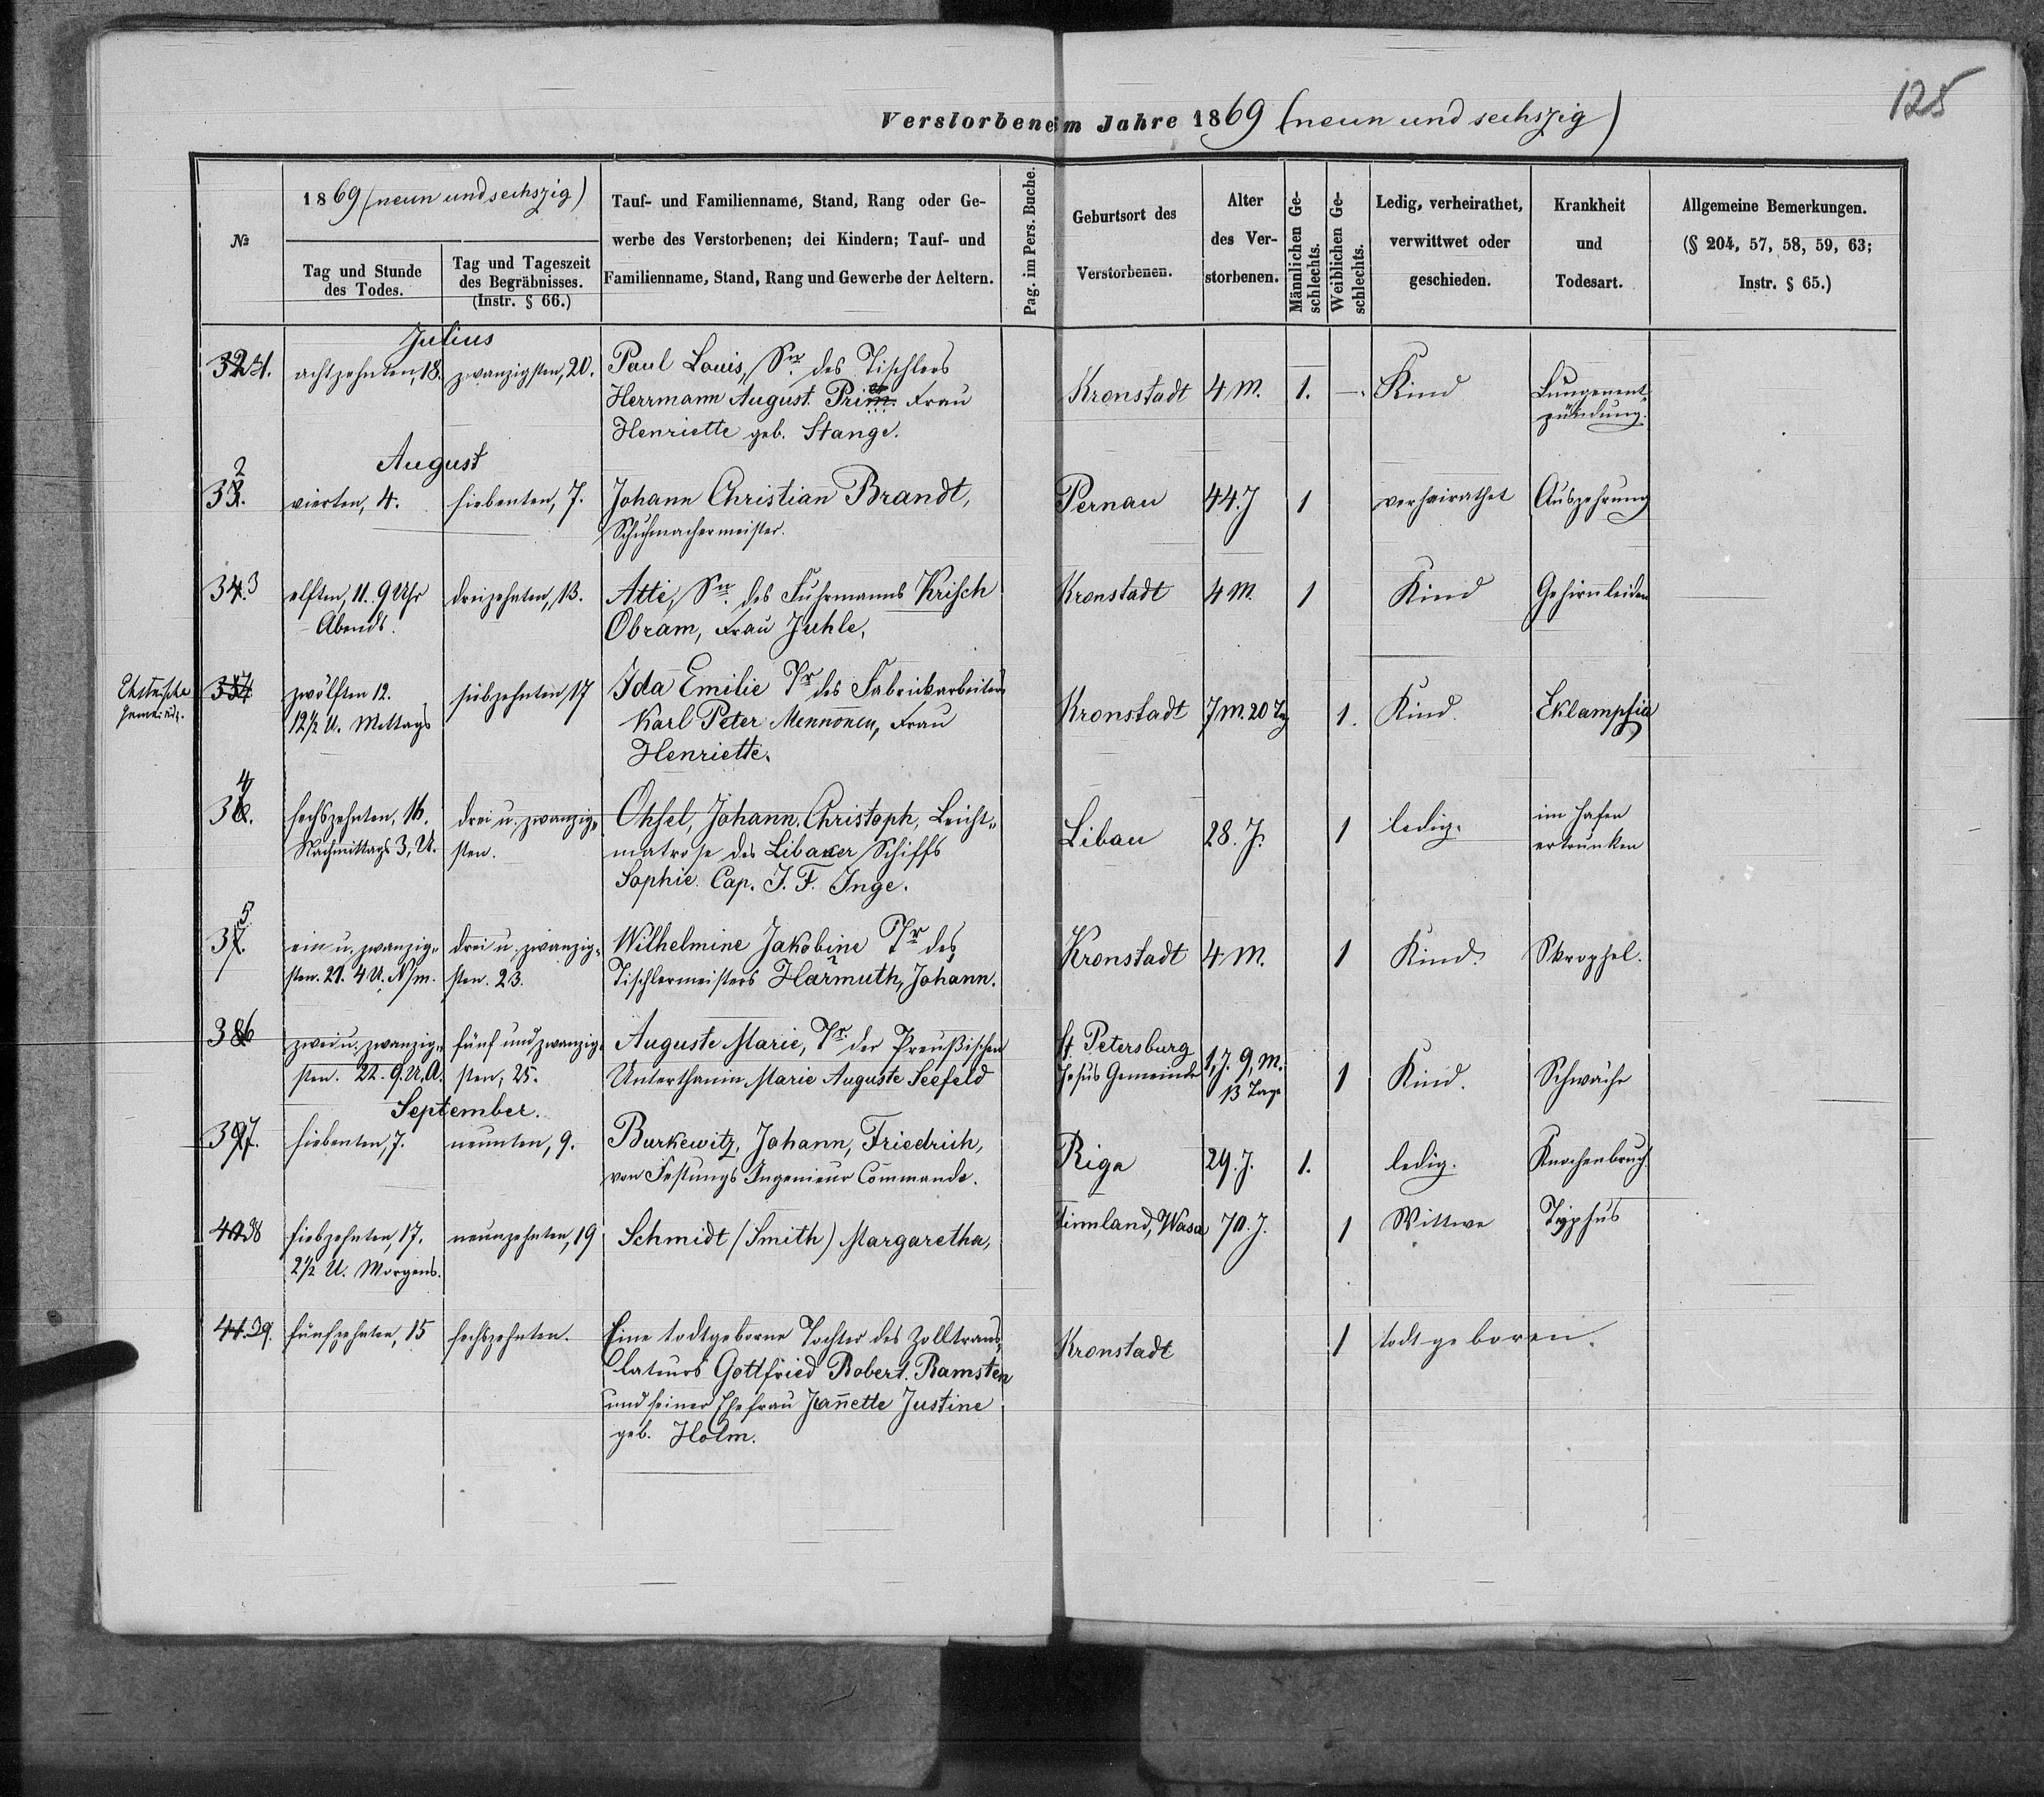 125
Verstorbene im Jahre 1869 (neun und sechszig)
№
1869 (neun und sechszig)
Tag und Stunde
des Todes.
Tag und Tageszeit
des Begräbnisses.
(Instr. § 66.)
Tauf- und Familienname, Stand, Rang oder Ge-
werbe des Verstorbenen; dei Kindern; Tauf- und
Familienname, Stand, Rang und Gewerbe der Aeltern.
Pag. im Pers. Buche.
Geburtsort des
Verstorbenen.
Alter
des Ver-
storbenen.
Männlichen Ge-
schlechts.
Weiblichen Ge-
schlechts.
Ledig, verheirathet,
verwittwet oder
geschieden.
Krankheit
und
Todesart.
Allgemeine Bemerkungen.
(§ 204, 57, 58, 59, 63;
Instr. § 65.)
Julius
achtzehnten, 18. zwanzigsten, 20. Paul Louis, Sn. des Tischlers
Herrmann August Frau
Henriette geb. Stange.
Kronstadt 4 M. 1. —. Kind Lungenent-
zündung.
August
vierten, 4. siebenten, 7. Johann Christian Brandt,
Schuhmachermeister.
Pernau 44. J 1 verheirathet Auszehrung
34.3 elften, 11. 9 Uhr dreizehnten, 13. Atte, Sn. des Fuhrmanns Krisch
Abends. Obram, Frau Juhle,
Kronstadt 4 M. 1 Kind Gehirnleiden
Ehstnische
Gemeinde.
zwölften 12. siebzehnten 17 Ida Emilie Tr des Fabrickarbeiters
12½ U. Mittags Karl Peter Mennonen, Frau
Henriette.
Kronstadt 7 M. 20 Tg 1. Kind. Eklampsia
4
sechszehnten, 16. drei u. zwanzig- Ohsel, Johann Christoph, Leicht-
Nachmittags 3, U. sten. matrose des Libauer Schiffs
Sophie. Cap. J. F. Inge.
Libau 28. J. 1 ledig. im Hafen
ertrunken
5
37. ein u. zwanzig- drei u. zwanzig- Wilhelmine Jakobine Tr des
sten. 21. 4 U. N/m. sten. 23. Tischlermeisters Harmuth, Johann.
Kronstadt 4 M. 1 Kind. Skrophel.
386 zwei u. zwanzig- fünf und zwanzig- Auguste Marie, Tr. der Preußischen
sten. 22. 9. U. A. sten, 25. Unterthanin Marie Auguste Seefeld
St. Petersburg
Jesus Gemeinde 1, J. 9, M.
13 Tage 1 Kind. Schwäche
September.
397. siebenten, 7. neunten, 9. Burkewitz, Johann, Friedrich,
von Festungs Ingenieur Commando.
Riga 29. J. 1. ledig. Knochenbruch.
siebzehnten, 17. neunzehnten, 19 Schmidt (Smith) Margaretha,
2½ U. Morgens.
Finnland, Wasa 70. J. 1 Wittwe Typhus
41.39. fünfzehnten, 15 sechszehnten. Eine todtgeborne Tochter des Zolltrans-
lateurs Gottfried Robert Ramsten
und seiner Ehefrau Jeannette Justine
geb. Holm.
Kronstadt 1 todtgeboren.